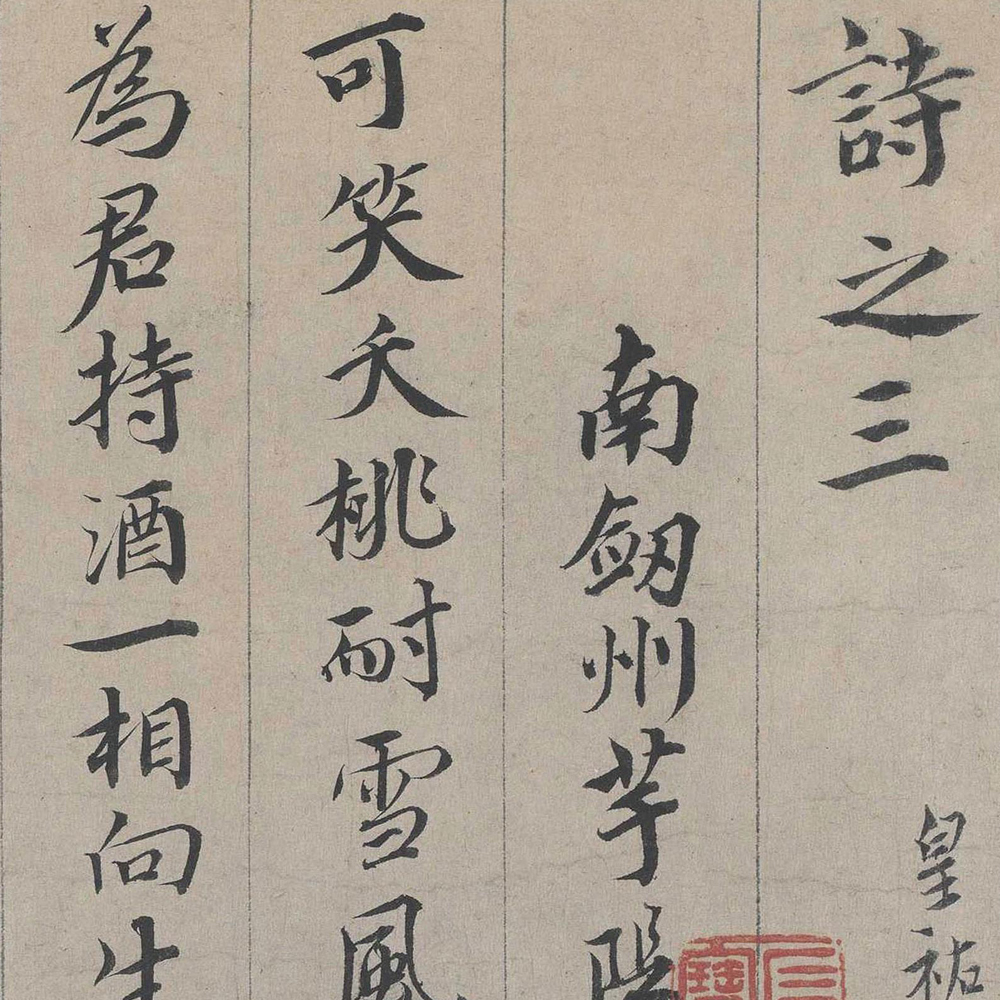 詩之三
皇祐
南劔州芋陽
可笑夭桃耐雪風
為君持酒一相向生